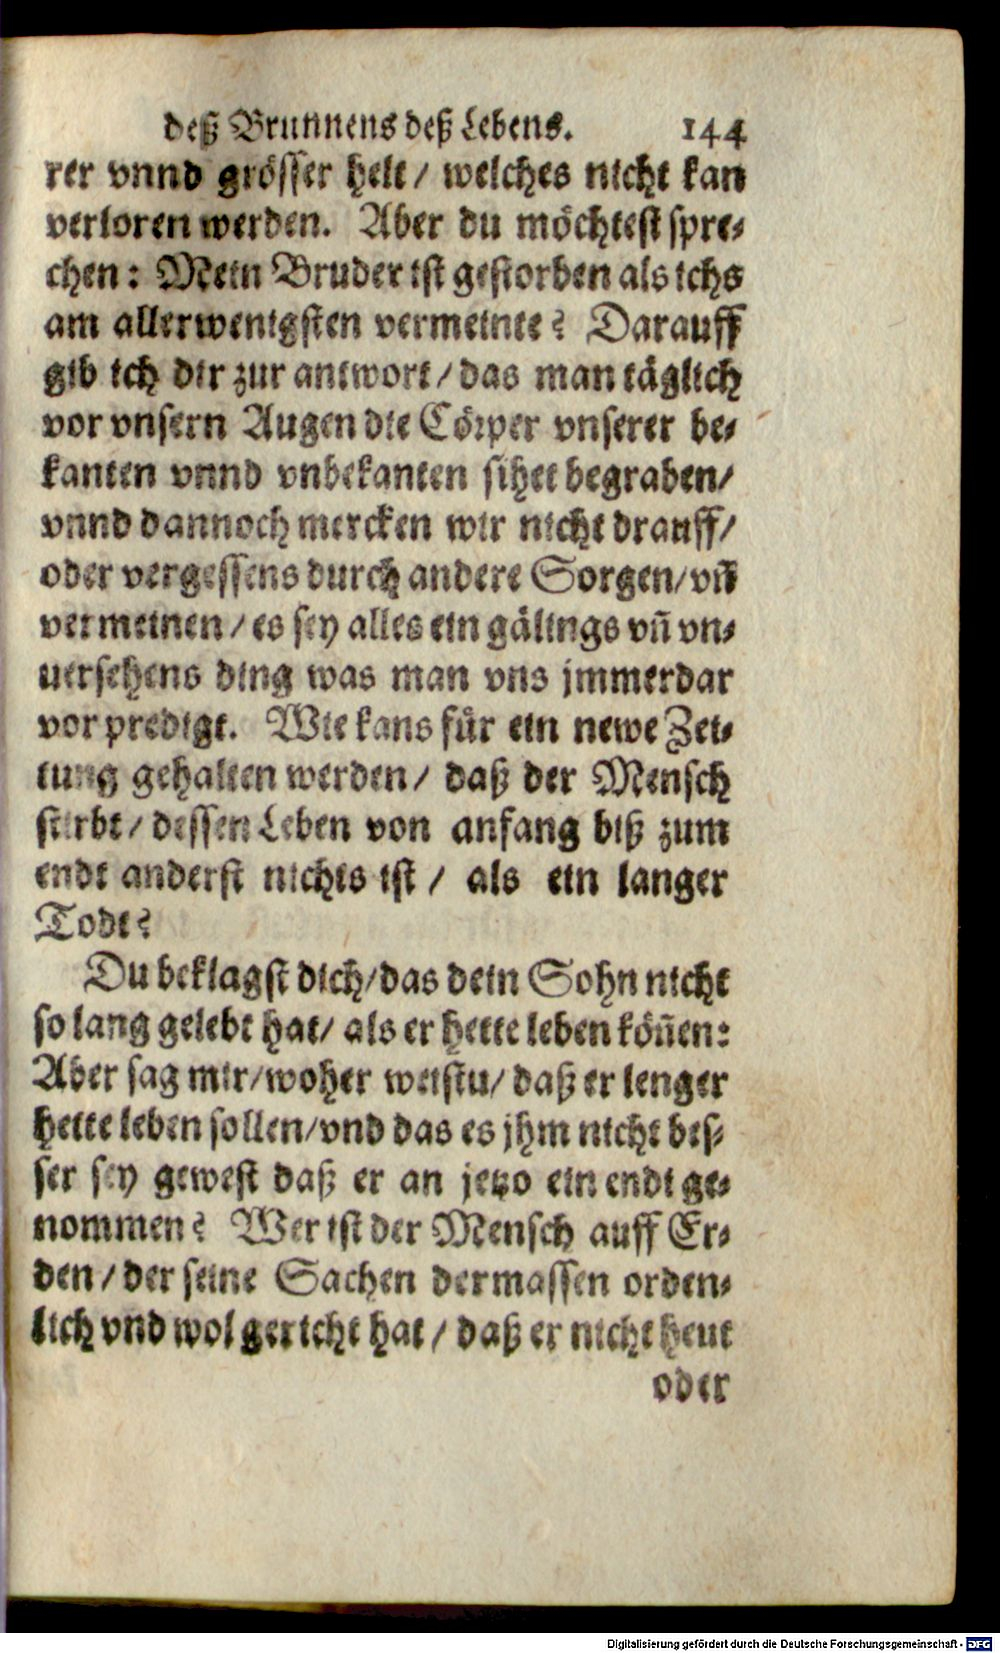 deß Brunnens deß Lebens. 144
rer vnnd grösser helt / welches nicht kan
verloren werden. Aber du möchtest spre-
chen: Mein Bruder ist gestorben als ichs
am allerwenigsten vermeinte? Darauff
gib ich dir zur antwort / das man täglich
vor vnsern Augen die Cörper vnserer be-
kanten vnnd vnbekanten sihet begraben/
vnnd dannoch mercken wir nicht drauff/
oder vergessens durch andere Sorgen/ vñ
vermeinen / es sey alles ein gälings vñ vn-
uersehens ding was man vns jmmerdar
vor predigt. Wie kans für ein newe Zei-
tung gehalten werden / daß der Mensch
stirbt / dessen Leben von anfang biß zum
endt anderst nichts ist / als ein langer
Todt?
Du beklagst dich/das dein Sohn nicht
so lang gelebt hat/ als er hette leben köñen:
Aber sag mir/woher weistu/ daß er lenger
hette leben sollen/vnd das es jhm nicht bes-
ser sey gewest daß er an jetzo ein endt ge-
nommen? Wer ist der Mensch auff Er-
den / der seine Sachen dermassen orden-
lich vnd wol gericht hat / daß er nicht heut
oder
Digitalisierung gefördert durch die Deutsche Forschungsgemeinschaft - DFG